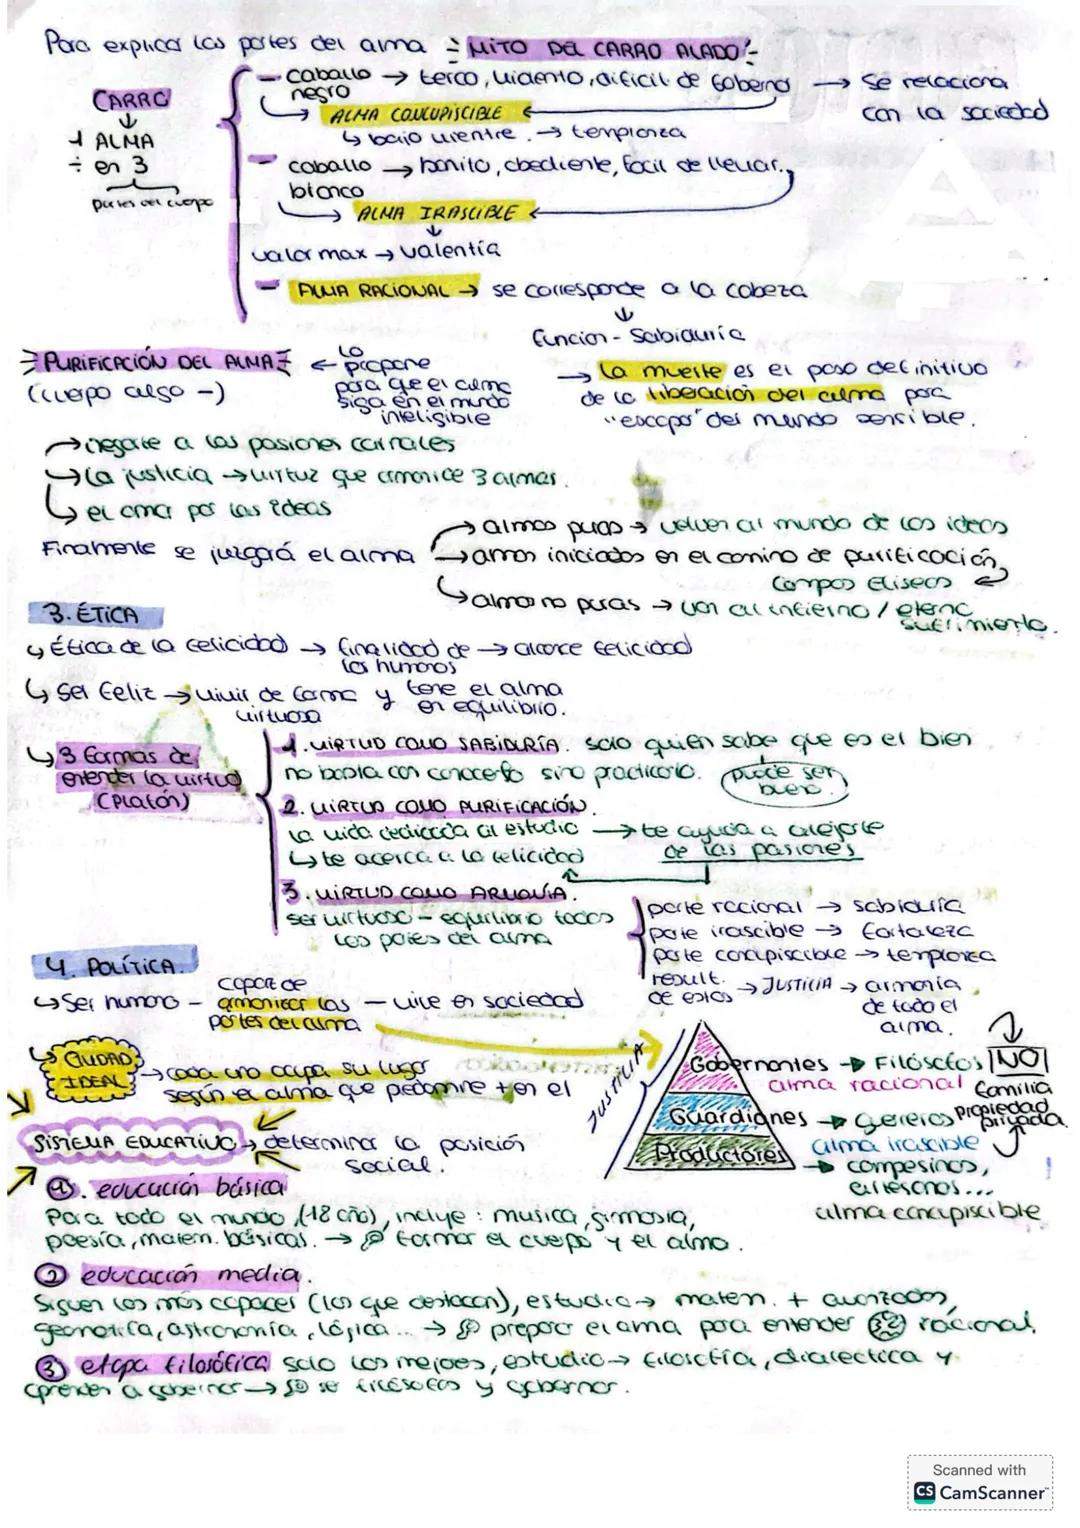 Para explicar las partes del alma = MITO DEL CARRO ALADO
CARRO
1 ALMA
÷ en 3
partes del cuerpo
- caballo negro → terco, violento, dificil de gobernar → se relaciona con la sociedad
ALMA CONCUPISCIBLE
↳ bajo vientre. → templanza
- caballo blanco → bonito, obediente, facil de llevar.
ALMA IRASCIBLE
valor max → valentía
- ALMA RACIONAL → se corresponde a la cabeza
función - sabiduría
PURIFICACIÓN DEL ALMA ← lo propone para que el alma siga en el mundo inteligible
(cuerpo algo -)
→ la muerte es el paso definitivo
de la liberación del alma para
"escapar" del mundo sensible.
→ negarte a las pasiones carnales
→ la justicia → virtuz que armonice 3 almas.
↳ el amor por las ideas
Finalmente se juzgará el alma
→ almas puras → vuelven al mundo de las ideas
→ almas iniciadas en el camino de purificación,
Campos Eliseos
→ almas no puras → van al infierno / eterno sufrimiento.
3. ÉTICA
↳ Ética de la felicidad → finalidad de los humanos → alcance felicidad
↳ Ser feliz → vivir de forma virtuosa y tene el alma en equilibrio.
↳ 3 formas de entender la virtud (PLATÓN)
1. VIRTUD COMO SABIDURÍA. solo quien sabe que es el bien
puede ser bueno.
no basta con conocerlo sino practicarlo.
2. VIRTUD COMO PURIFICACIÓN.
la vida dedicada al estudio → te ayuda a alejarte de las pasiones
↳ te acerca a la felicidad
3. VIRTUD COMO ARMONÍA.
ser virtuoso - equilibrio todas las partes del alma
parte racional → sabiduría
parte irascible → fortaleza
parte concupiscible → templanza
result. de estas → JUSTICIA → armonía de todo el alma.
4. POLÍTICA.
↳ Ser humano - capaz de armonizar las partes del alma - vive en sociedad
↳ CIUDAD IDEAL → cada uno ocupa su lugar
según el alma que predomine + en el
SISTEMA EDUCATIVO → determina la posición social.
JUSTICIA
Gobernantes → Filósofos
alma racional
Guardianes → gereros
alma irascible
Productores → campesinos, artesanos...
alma concupiscible
NO
familia
propiedad privada
1. educación básica
Para todo el mundo, (18 año), incluye: musica, gimnasia,
poesía, matem. básicas. → formar el cuerpo y el alma.
2 educación media.
Siguen los más capaces (los que destacan), estudio → matem. + avanzadas,
geometría, astronomía, lógica... → preparar el alma para entender racional.
3 etapa filosófica solo los mejores, estudio → filosofía, dialectica y
aprenden a gobernar → se filósofos y gobernar.
Scanned with
CS CamScanner